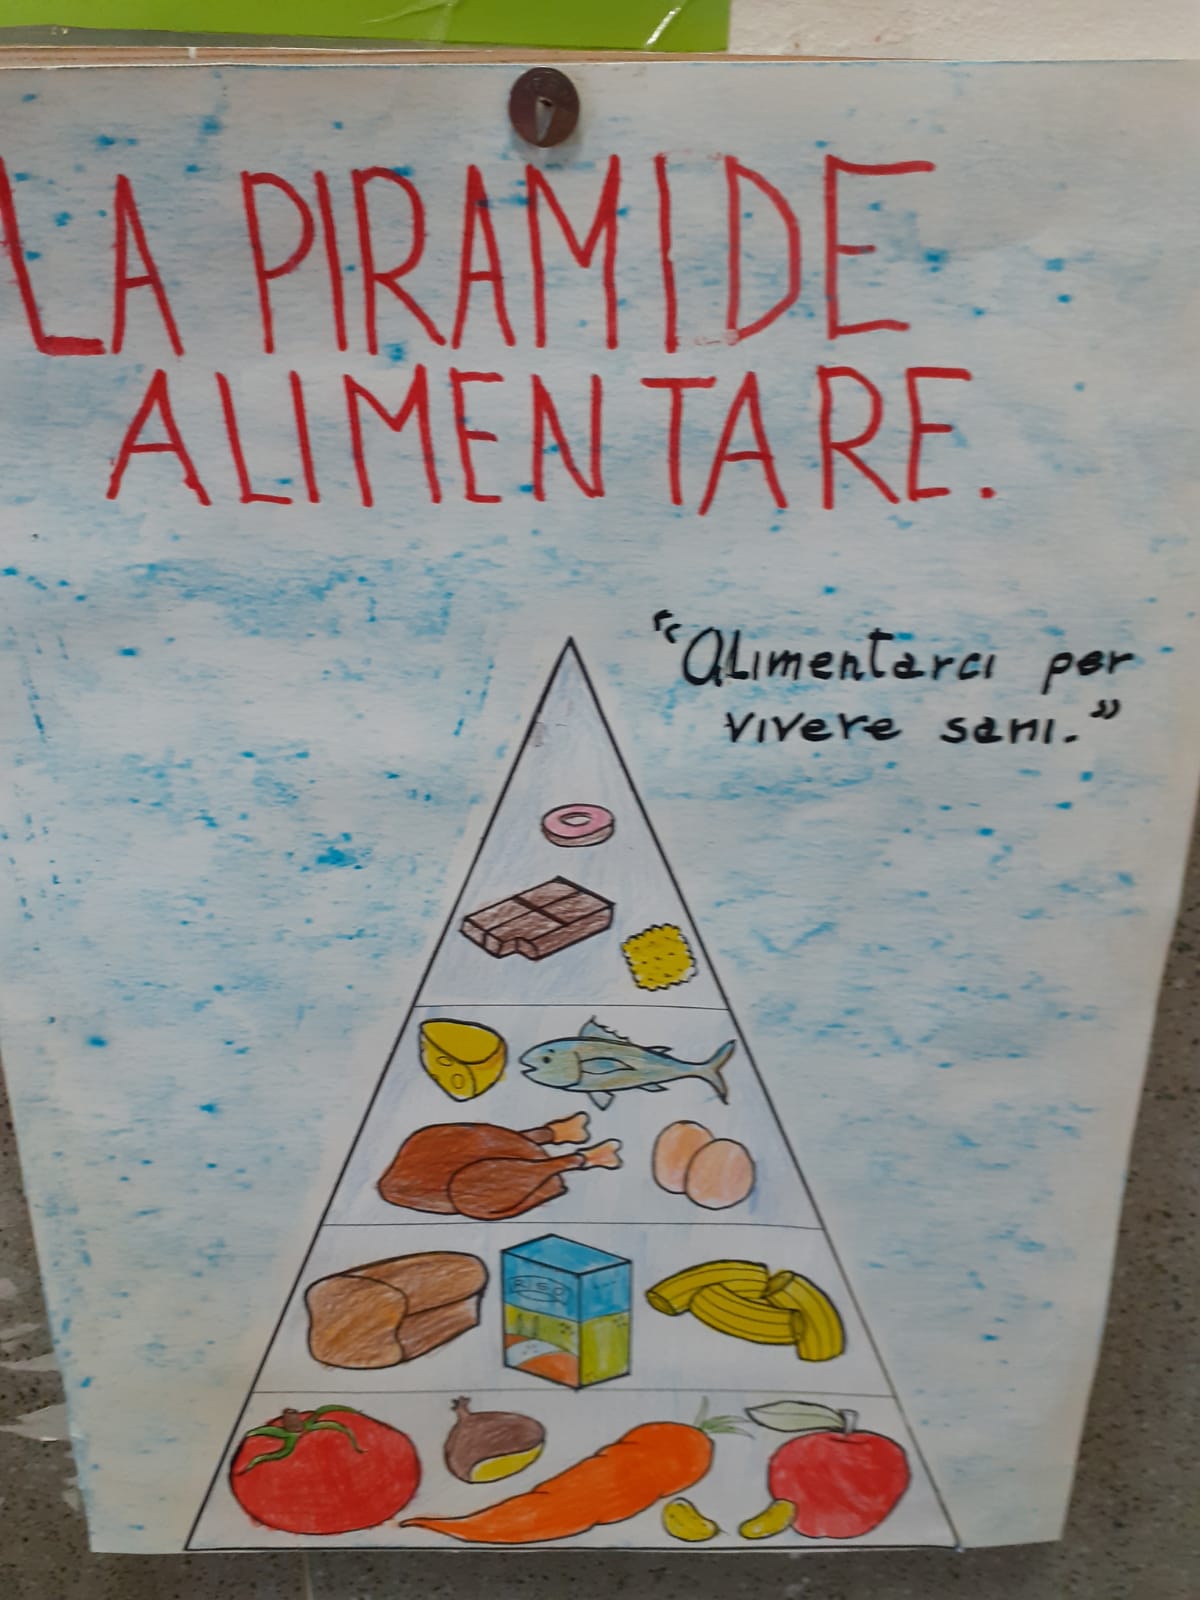 LA PIRAMIDE
ALIMENTARE.
"Alimentarci per
vivere sani."
RISO